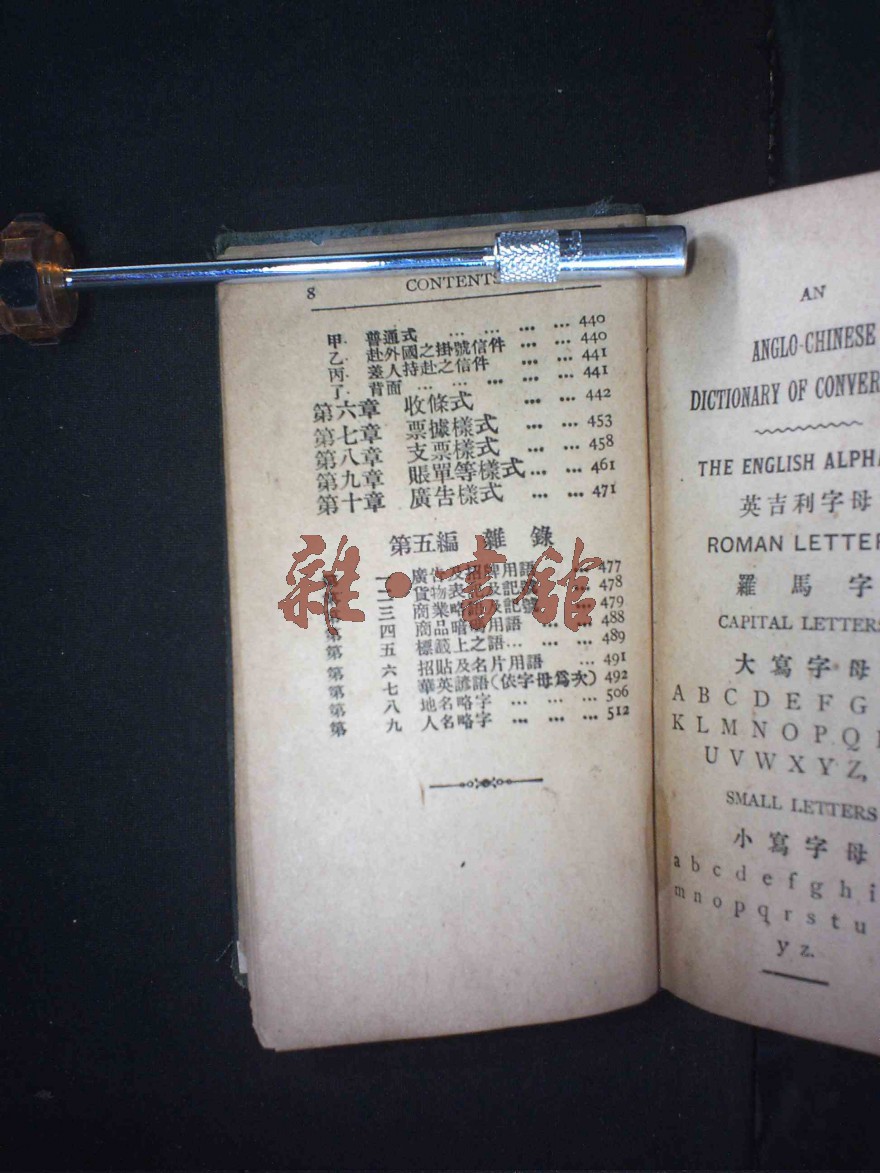 8 CONTENTS
甲. 普通式 … … … … 440
乙. 赴外國之掛號信件 … … 440
丙. 差人持赴之信件 … … 441
丁. 背面 … … … … … 441
第六章 收條式 … … 442
第七章 票據樣式 … … 453
第八章 支票樣式 … … 458
第九章 賬單等樣式 … … 461
第十章 廣告樣式 … … 471
第五編 雜錄
第 一 廣告及招牌用語 … 477
第 二 貨物表記及記號 … 478
第 三 商業略語及記號 … 479
第 四 商品暗碼用語 … … 488
第 五 標籤上之語 … … … 489
第 六 招貼及名片用語 … 491
第 七 華英諺語(依字母爲次) 492
第 八 地名略字 … … … 506
第 九 人名略字 … … … 512
雜·書館
AN
ANGLO-CHINESE
DICTIONARY OF CONVER
THE ENGLISH ALPHA
英吉利字母
ROMAN LETTER
羅馬字
CAPITAL LETTERS
大寫字母
A B C D E F G
K L M N O P Q
U V W X Y Z,
SMALL LETTERS
小寫字母
a b c d e f g h i
m n o p q r s t u
y z.